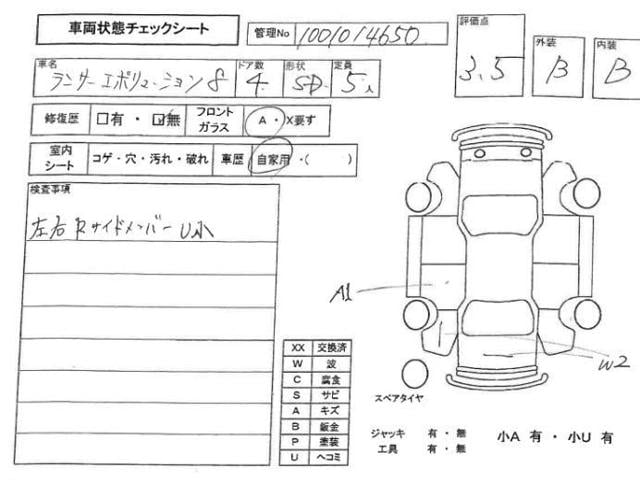 車両状態チェックシート
管理No 1001014650
評価点 3.5
外装 B
内装 B
車名 ランサーエボリューション8
ドア数 4
形状 SD
定員 5人
修復歴 □有・☑無
フロントガラス A・X要す
室内シート コゲ・穴・汚れ・破れ
車歴 自家用・( )
検査事項
左右RサイドメンバーU小
A1
W2
XX 交換済
W 波
C 腐食
S サビ
A キズ
B 鈑金
P 塗装
U ヘコミ
スペアタイヤ
ジャッキ 有・無
工具 有・無
小A 有・小U 有